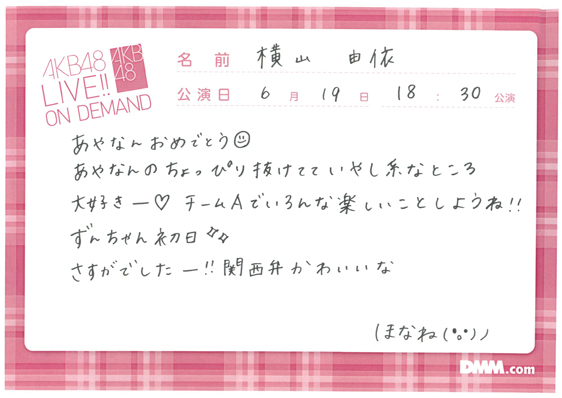 AKB48
LIVE!!
ON DEMAND
AKB
48
名前 横山 由依
公演日 6月19日 18:30公演
あやなんおめでとう☺
あやなんのちょっぴり抜けてていやし系なところ
大好きー♡ チームAでいろんな楽しいことしようね!!
ずんちゃん初日✧✧
さすがでしたー!! 関西弁かわいいな
ほなね(•̀ᴗ•́)ノ
DMM.com